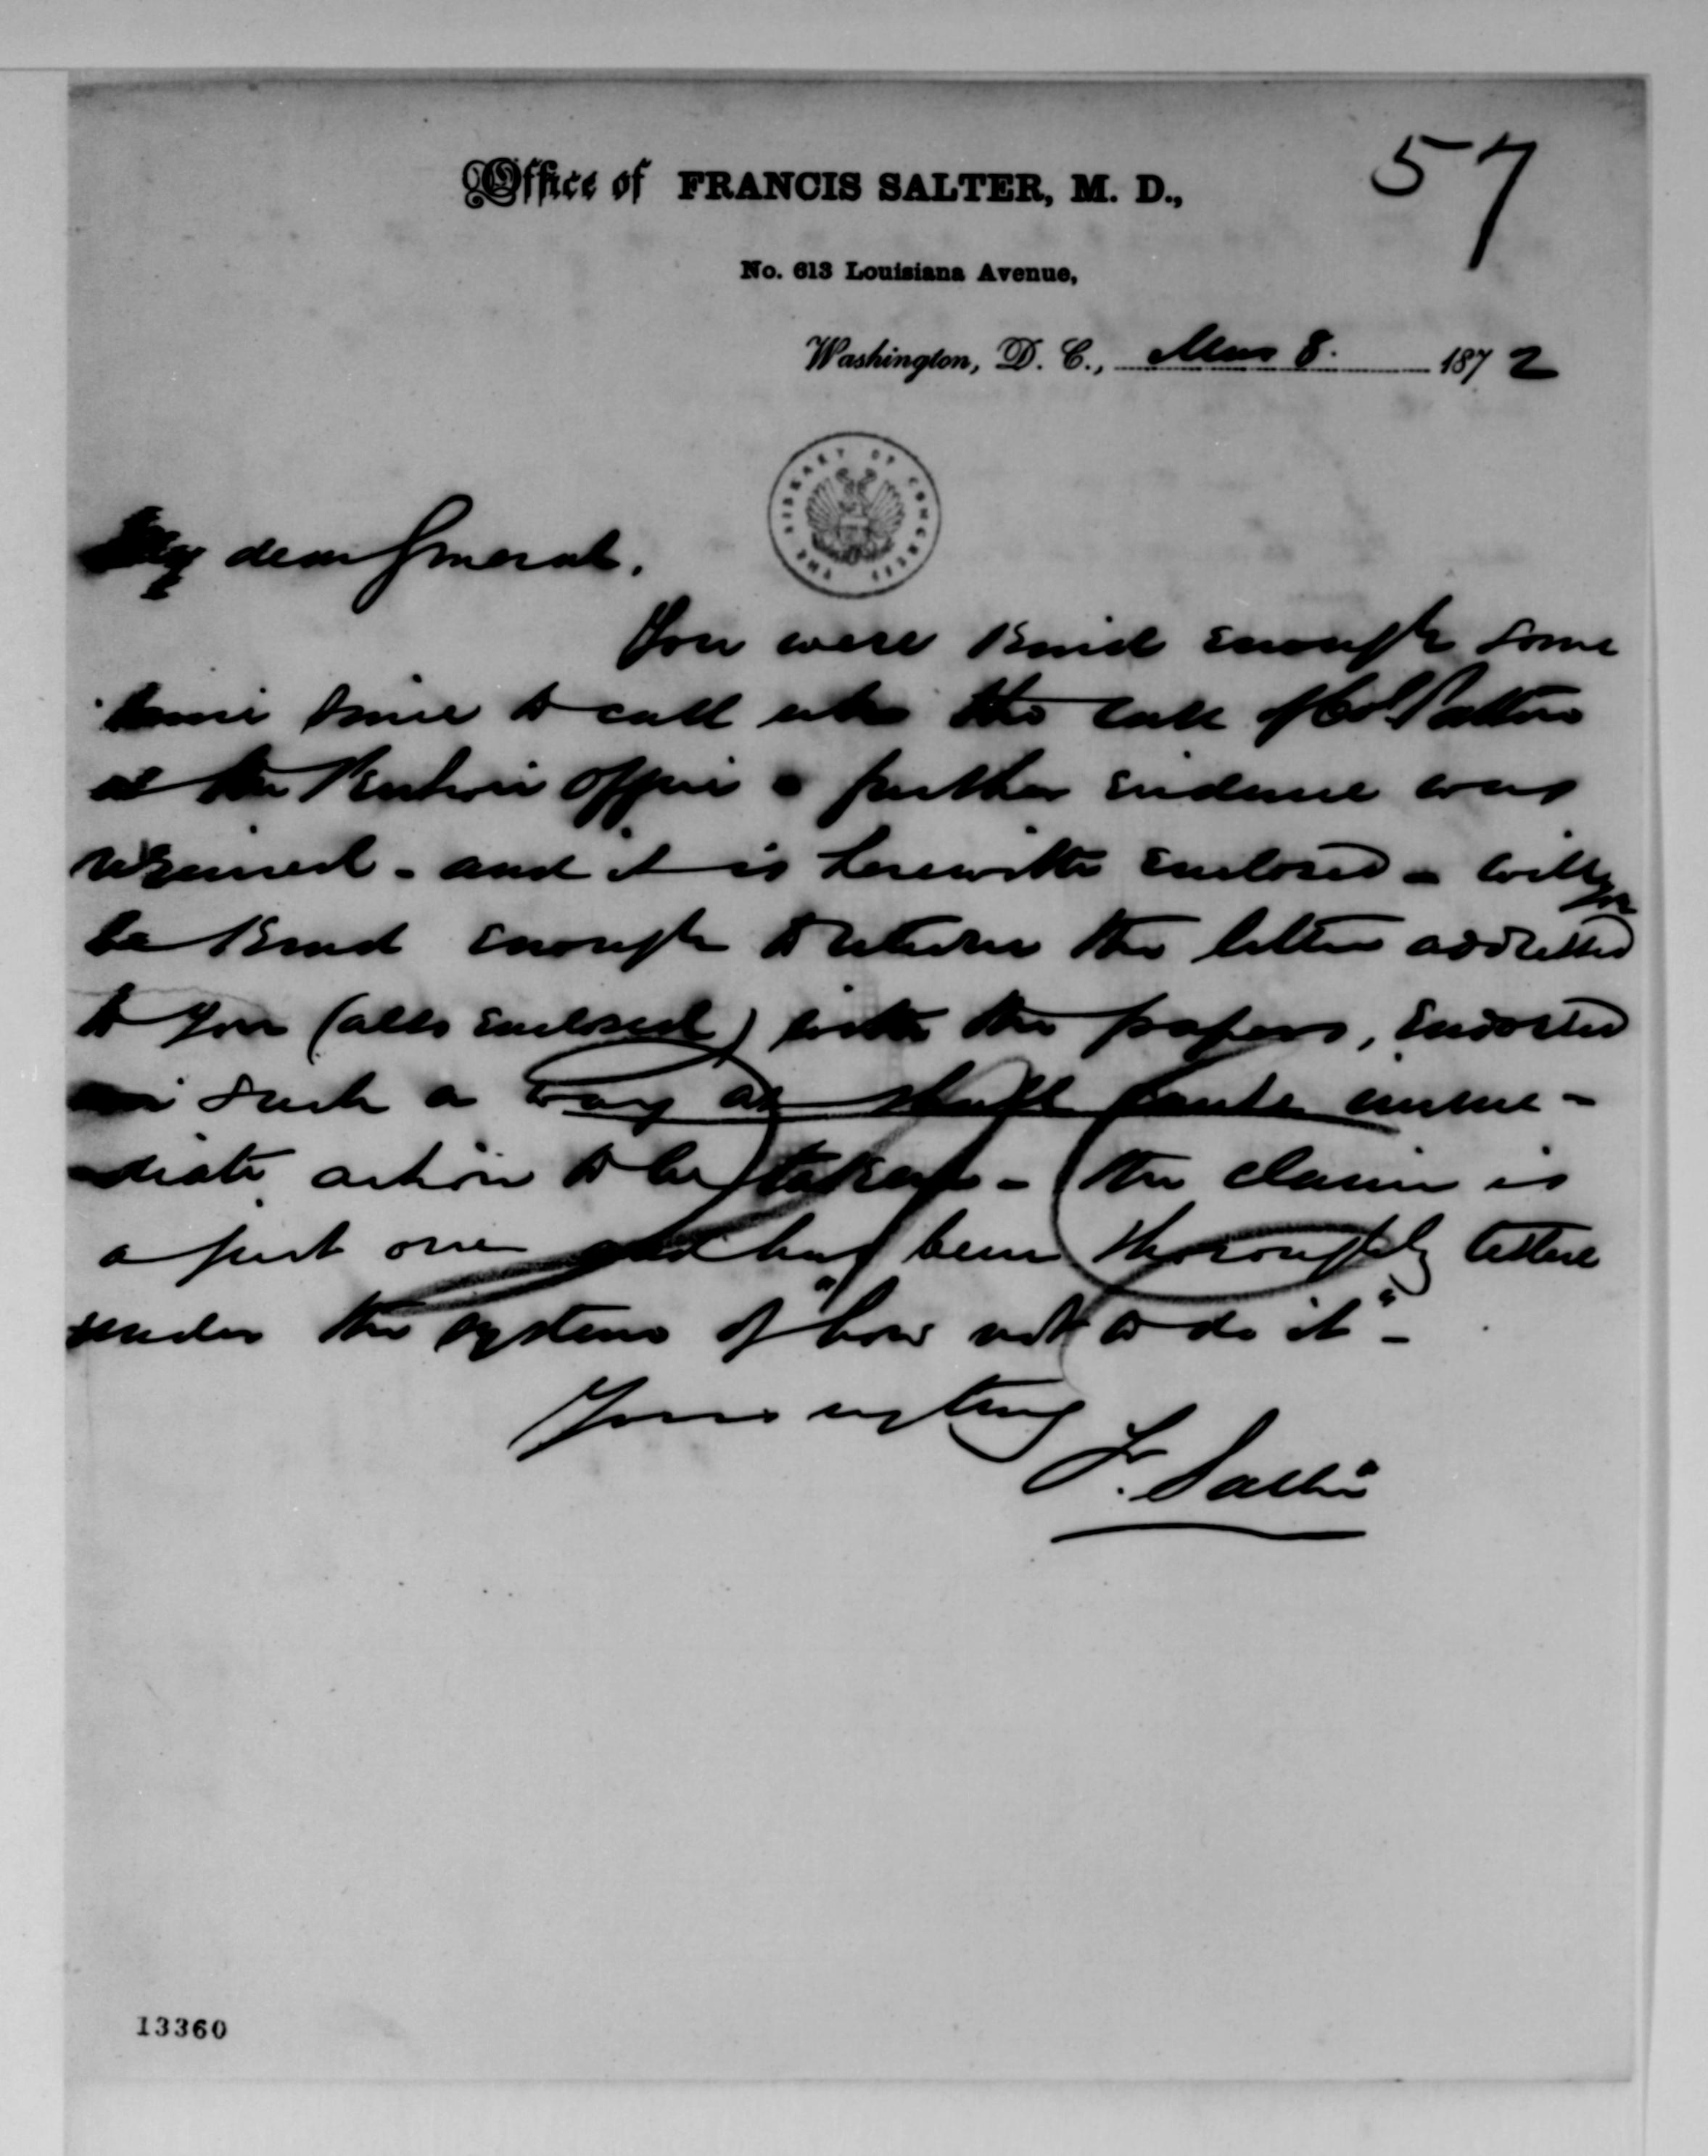 57
Office of FRANCIS SALTER, M. D.,
No. 613 Louisiana Avenue,
Washington, D. C., Mar 8. 1872
THE LIBRARY OF CONGRESS
My dear General.
You were kind enough some
time since to call up the case of Col Patton
at the Pension office & further evidence was
required - and it is herewith enclosed - will you
be kind enough to return the letter addressed
to you (also enclosed) with the papers, endorsed
in such a way as shall cause imme-
diate action to be taken - the claim is
a just one and has been thoroughly tested
under the system of "how not to do it" -
Yours very truly
F. Salter
13360